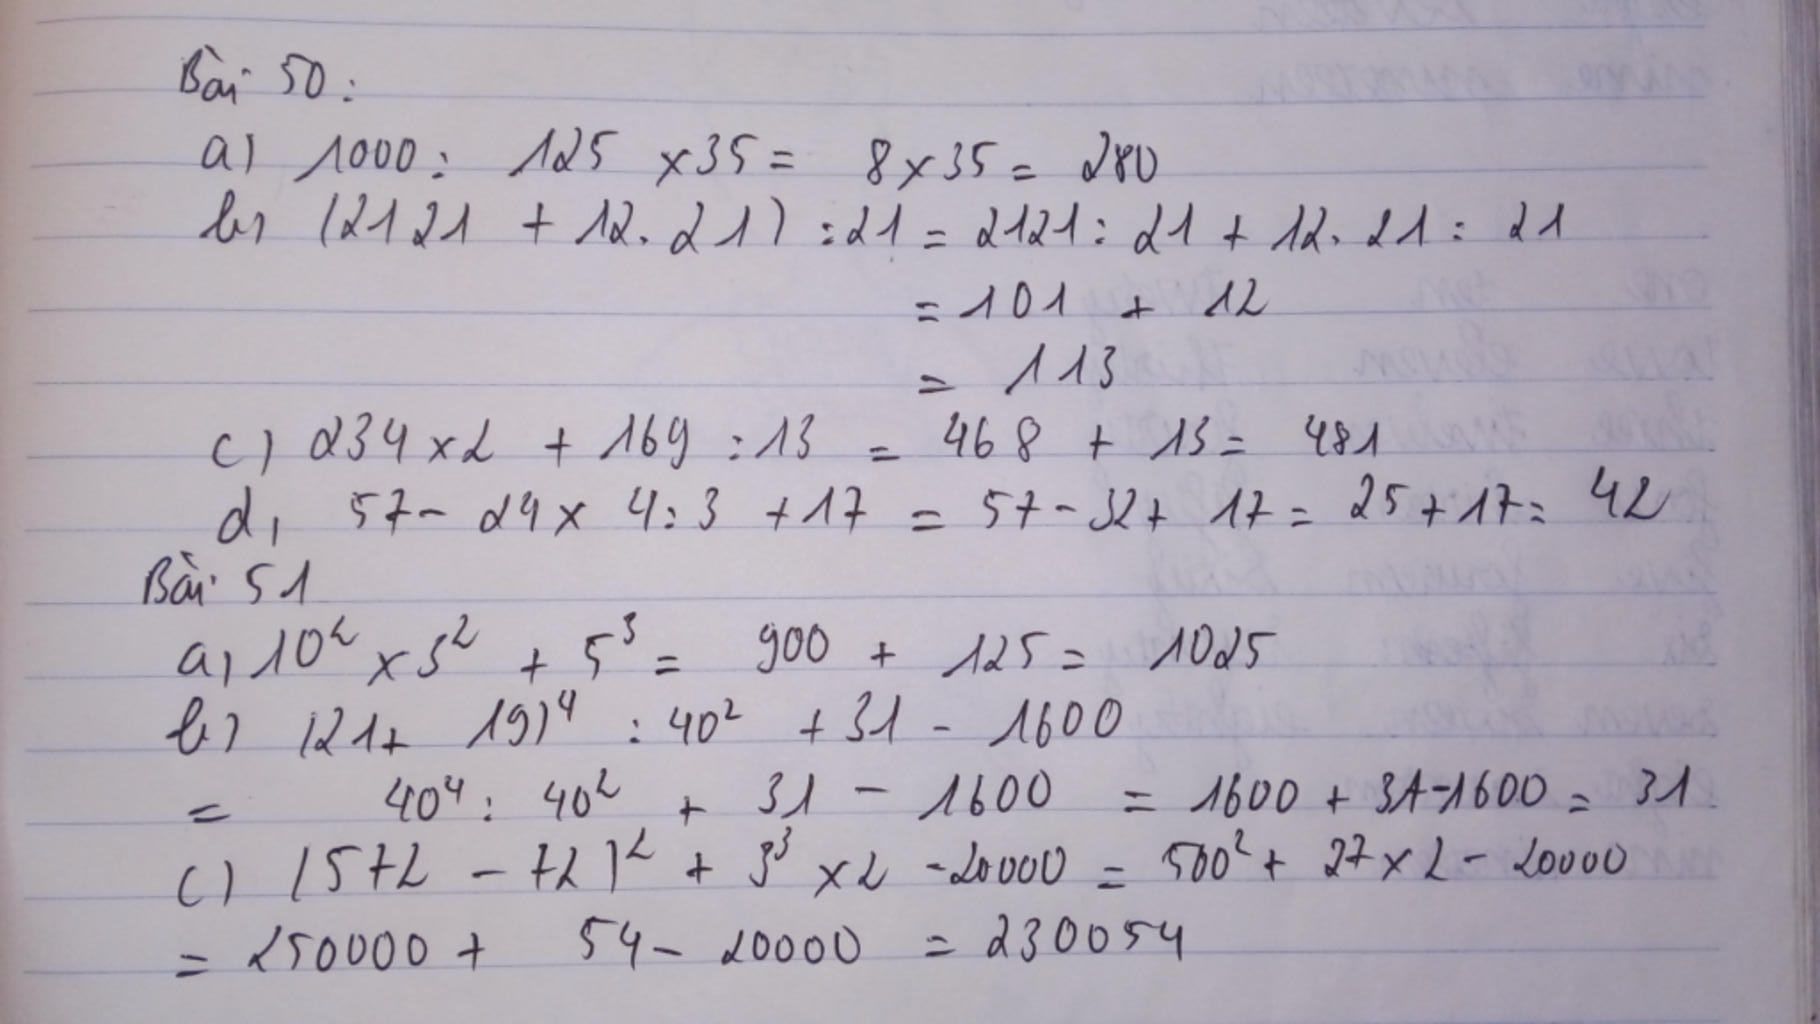 Bài 50:
a) 1000 : 125 x 35 = 8 x 35 = 280
b) (2121 + 12. 21) : 21 = 2121 : 21 + 12. 21 : 21
= 101 + 12
= 113
c) 234 x 2 + 169 : 13 = 468 + 13 = 481
d, 57 - 24 x 4 : 3 + 17 = 57 - 32 + 17 = 25 + 17 = 42
Bài 51
a, 10² x 3² + 5³ = 900 + 125 = 1025
b) (21 + 19)⁴ : 40² + 31 - 1600
= 40⁴ : 40² + 31 - 1600 = 1600 + 31 - 1600 = 31
c) (572 - 72)² + 3³ x 2 - 20000 = 500² + 27 x 2 - 20000
= 250000 + 54 - 20000 = 230054